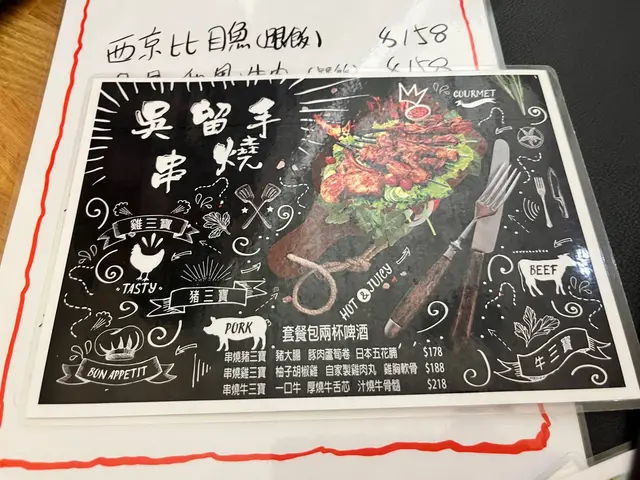 西京比目魚(跟飯) $158
$158
吳留手
串燒
GOURMET
雞三寶
TASTY
豬三寶
HOT & JUICY
BEEF
PORK
牛三寶
BON APPETIT
套餐包兩杯啤酒
串燒豬三寶 豬大腸 豚肉蘆筍卷 日本五花腩 $178
串燒雞三寶 柚子胡椒雞 自家製雞肉丸 雞胸軟骨 $188
串燒牛三寶 一口牛 厚燒牛舌芯 汁燒牛骨髓 $218